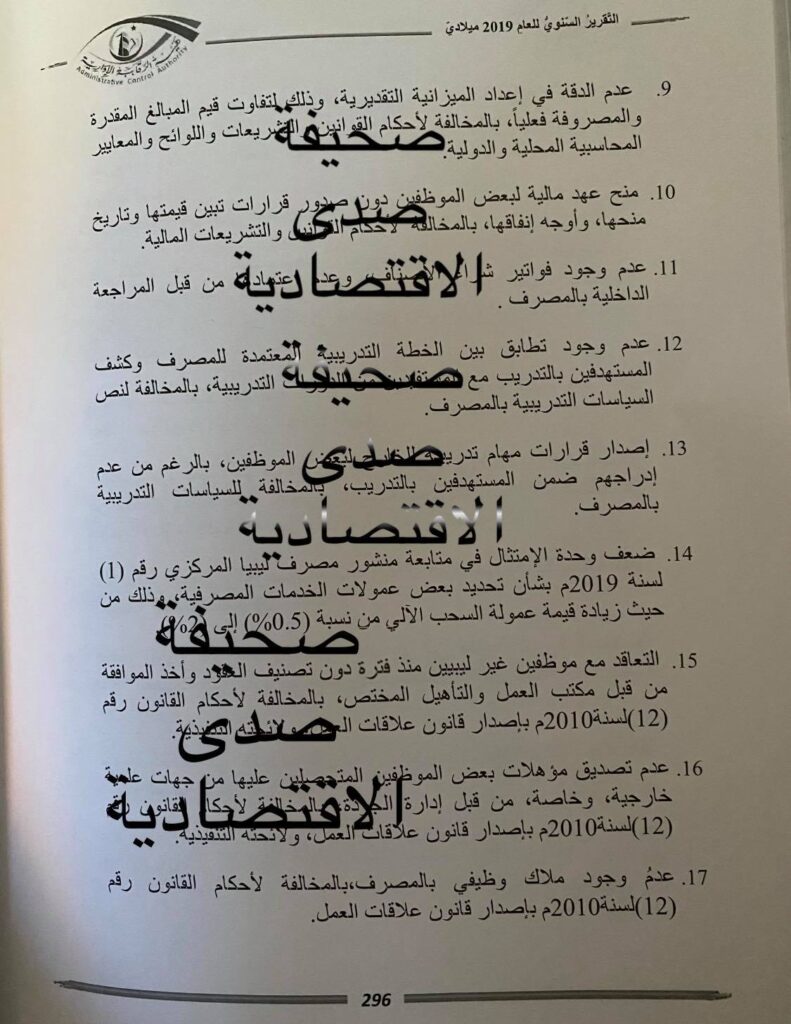 التَّقريرُ السَّنويُّ للعامِ 2019 ميلاديّ
هيئة الرقابة الإدارية
Administrative Control Authority
9. عدم الدقة في إعداد الميزانية التقديرية، وذلك لتفاوت قيم المبالغ المقدرة
والمصروفة فعلياً، بالمخالفة لأحكام القوانين والتشريعات واللوائح والمعايير
المحاسبية المحلية والدولية.
صحيفة
10. منح عهد مالية لبعض الموظفين دون صدور قرارات تبين قيمتها وتاريخ
منحها، وأوجه إنفاقها، بالمخالفة لأحكام القوانين والتشريعات المالية.
صدى
11. عدم وجود فواتير شراء الأصناف، وعدم اعتمادها من قبل المراجعة
الداخلية بالمصرف .
الاقتصادية
12. عدم وجود تطابق بين الخطة التدريبية المعتمدة للمصرف وكشف
المستهدفين بالتدريب مع المستفيدين من الدورات التدريبية، بالمخالفة لنص
السياسات التدريبية بالمصرف.
صحيفة
13. إصدار قرارات مهام تدريبية للخارج لبعض الموظفين، بالرغم من عدم
إدراجهم ضمن المستهدفين بالتدريب، بالمخالفة للسياسات التدريبية
بالمصرف.
صدى
الاقتصادية
14. ضعف وحدة الإمتثال في متابعة منشور مصرف ليبيا المركزي رقم (1)
لسنة 2019م بشأن تحديد بعض عمولات الخدمات المصرفية، وذلك من
حيث زيادة قيمة عمولة السحب الآلي من نسبة (0.5%) إلى (2%).
صحيفة
15. التعاقد مع موظفين غير ليبيين منذ فترة دون تصنيف العقود وأخذ الموافقة
من قبل مكتب العمل والتأهيل المختص، بالمخالفة لأحكام القانون رقم
(12)لسنة2010م بإصدار قانون علاقات العمل، ولائحته التنفيذية.
صدى
16. عدم تصديق مؤهلات بعض الموظفين المتحصلين عليها من جهات علمية
خارجية، وخاصة، من قبل إدارة الجودة، بالمخالفة لأحكام القانون رقم
(12)لسنة2010م بإصدار قانون علاقات العمل، ولائحته التنفيذية.
الاقتصادية
17. عدمُ وجود ملاك وظيفي بالمصرف،بالمخالفة لأحكام القانون رقم
(12)لسنة2010م بإصدار قانون علاقات العمل.
296